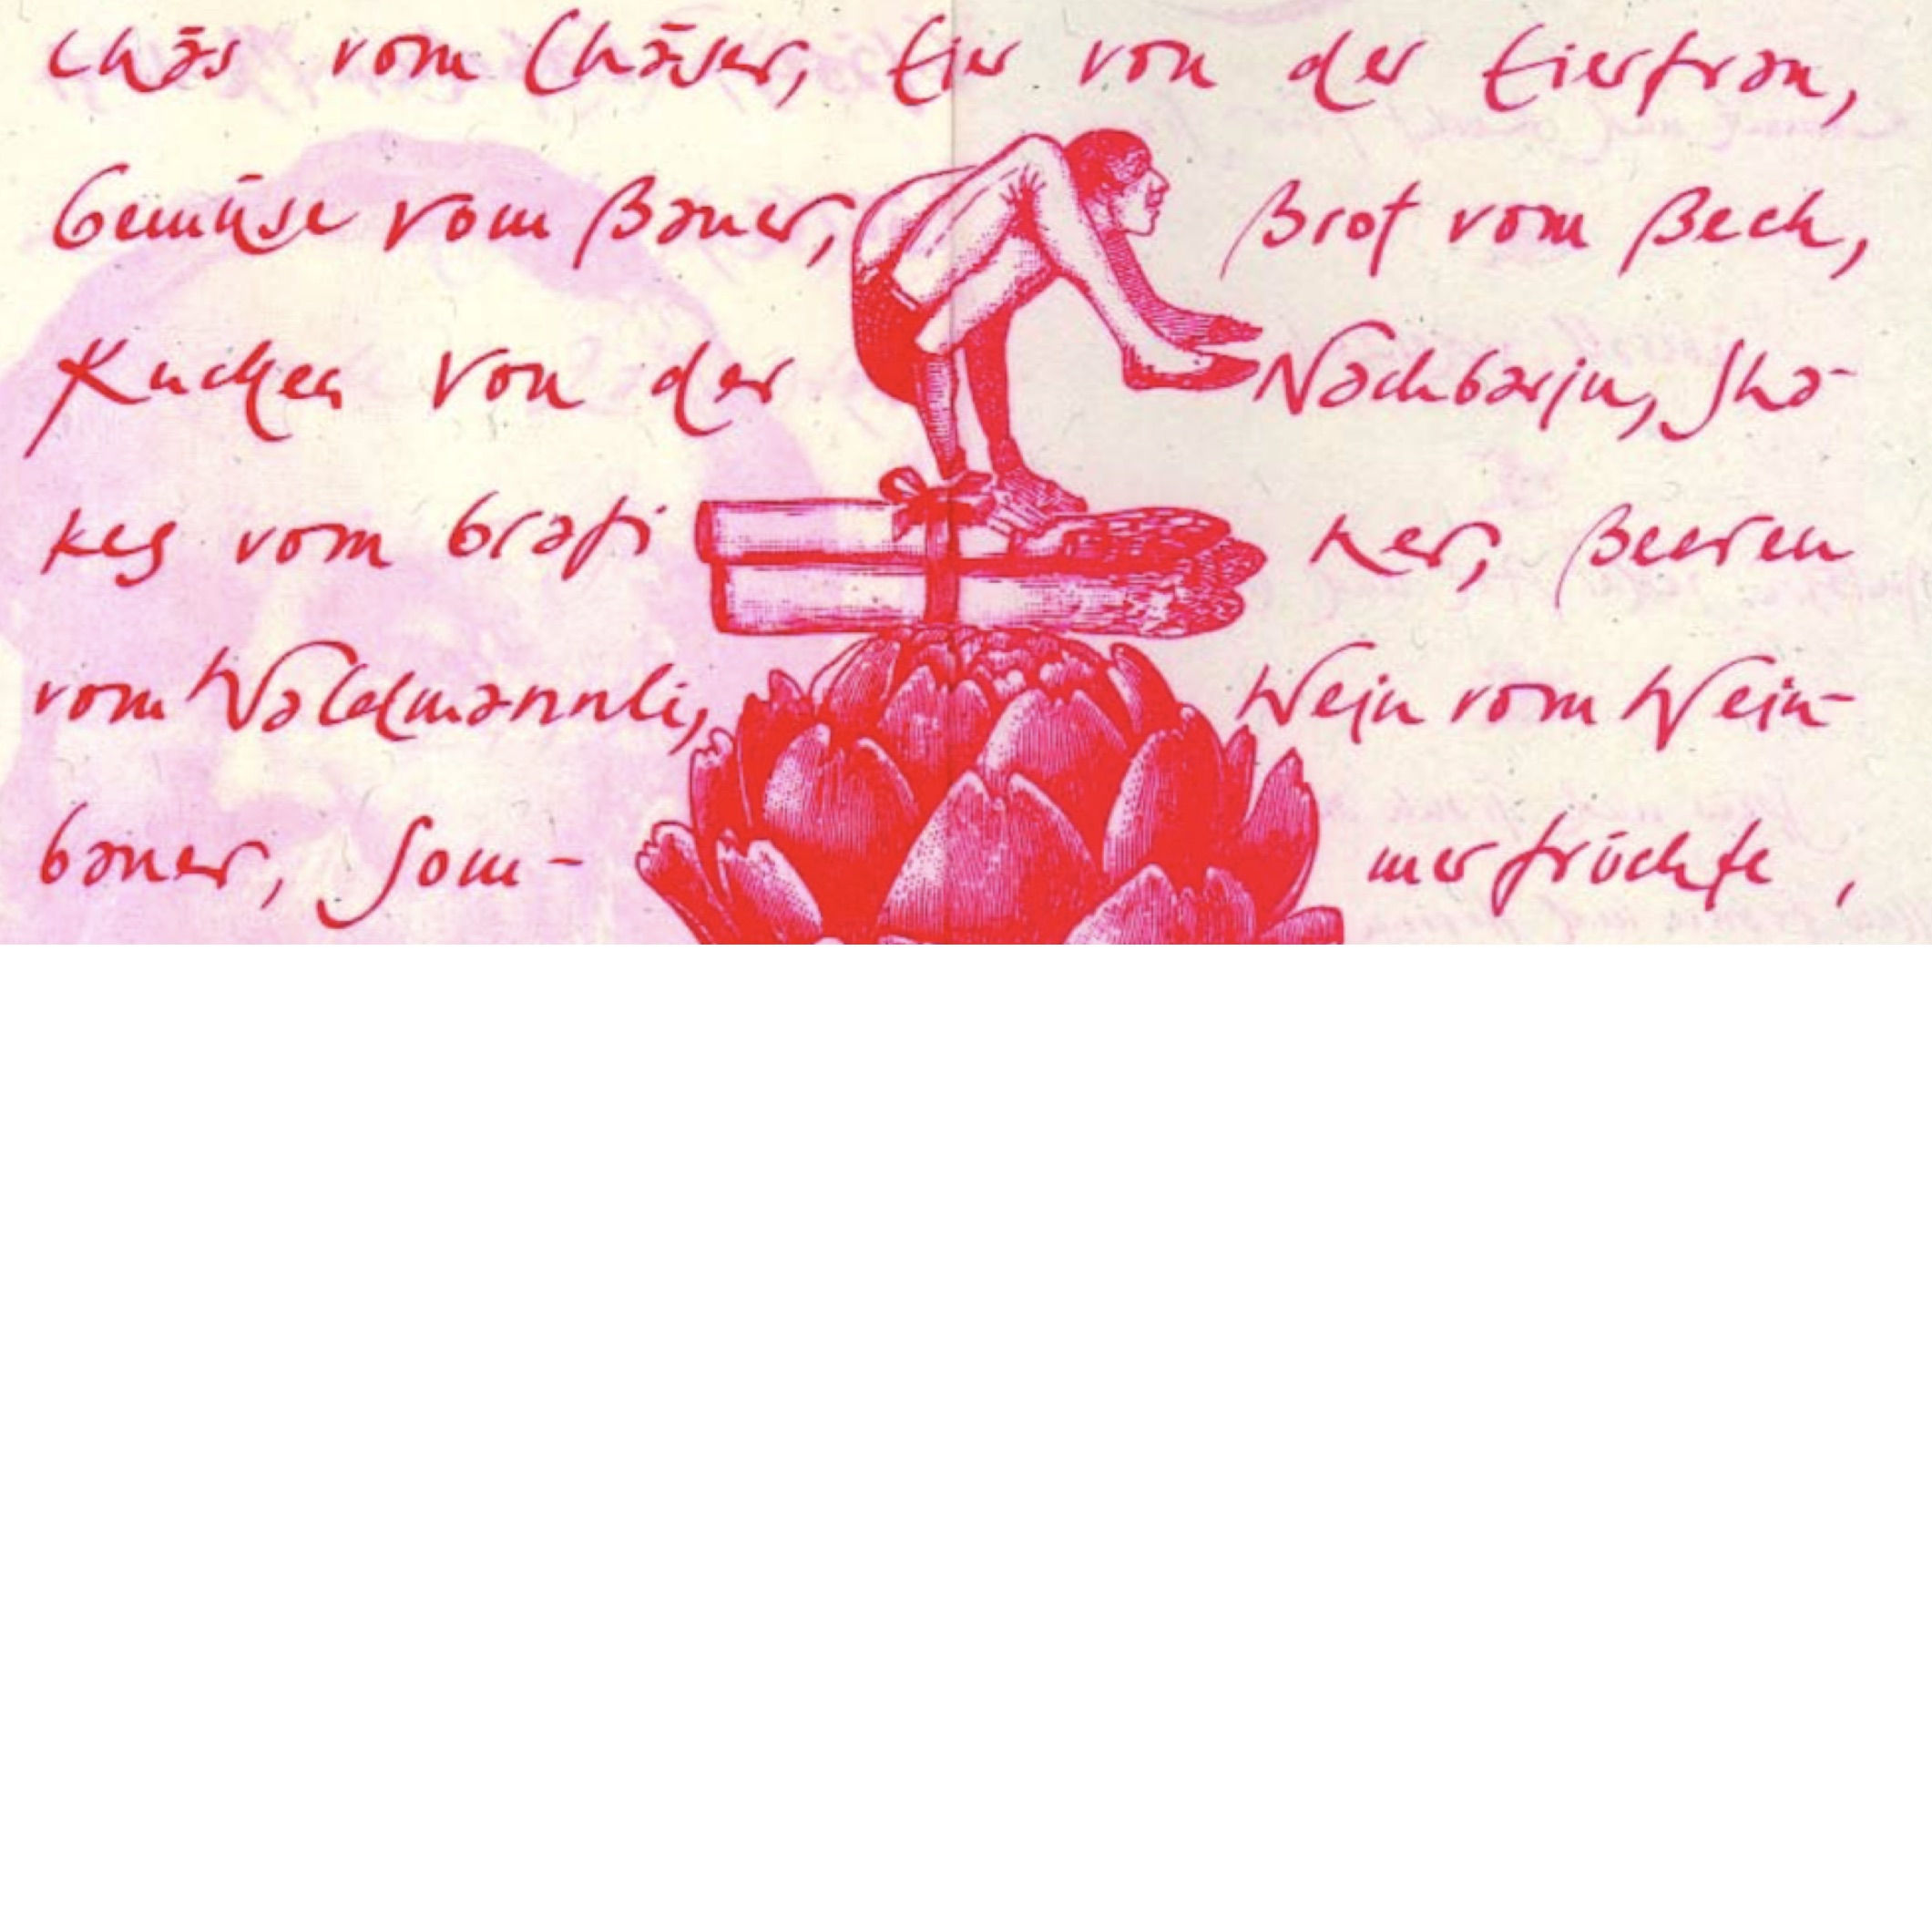 Chäs vom Chäser, Eier von der Eierfrau,
Gemüse vom Bauer, Brot vom Beck,
Kuchen von der Nachbarin, Sha-
kes vom Grafiker, Beeren
vom Waldmannli, Wein vom Wein-
bauer, Som- merfrüchte,